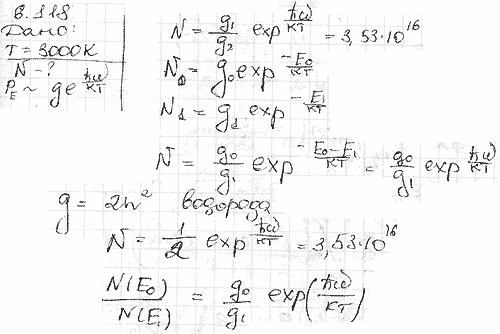 6.118
Дано:
T = 3000К
N - ?
P_E ~ g e^{ħω/кТ}
N = g_1/g_2 exp^{ħω/кТ} = 3,53·10^16
N_0 = g_0 exp^{-E_0/кТ}
N_1 = g_1 exp^{-E_1/кТ}
N = g_0/g_1 exp^{-(E_0-E_1)/кТ} = g_0/g_1 exp^{ħω/кТ}
g = 2n² водорода
N = 1/2 exp^{ħω/кТ} = 3,53·10^16
N(E_0)/N(E_1) = g_0/g_1 exp(ħω/кТ)